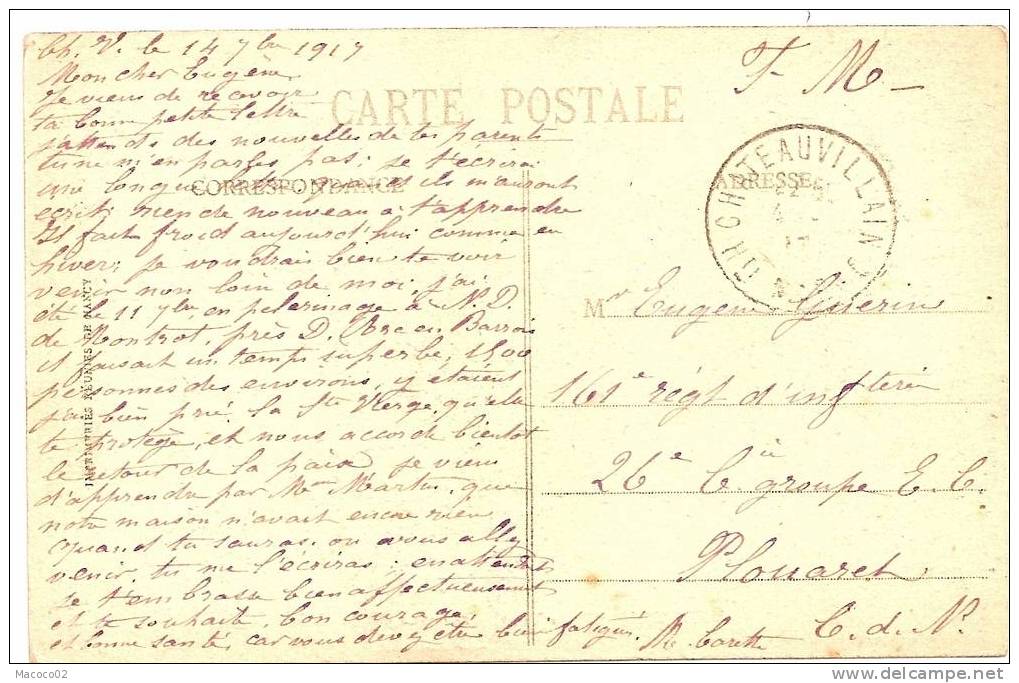 Ch. V. le 14 7bre 1917
Mon cher Eugène
Je viens de recevoir
ta bonne petite lettre
j'attends des nouvelles de tes parents
tu ne m'en parles pas; je t'écrirai
une longue quand ils m'auront
écrit; rien de nouveau à t'apprendre
Il fait froid aujourd'hui comme en
hiver; je voudrais bien te voir
venir non loin de moi, j'ai
été le 11 7bre en pelerinage à N. D.
de Montrot, près D. Arc en Barrois
il faisait un temps superbe, 1500
personnes des environs, y étaient
j'ai bien prié la Ste Vierge qu'elle
te protège, et nous accorde bientot
le retour de la paix je viens
d'apprendre par Mme Martin, que
notre maison n'avait encore rien
Quand tu sauras, ou vous allez
venir, tu me l'écriras; en attendant
je t'embrasse bien affectueusement
et te souhaite, bon courage
et bonne santé, car vous devez être bien fatigués.
CARTE POSTALE
CORRESPONDANCE
ADRESSE
IMPRIMERIES RÉUNIES DE NANCY
F- M-
CHATEAUVILLAIN
Mr Eugène Guerin
161e régt d'infterie
26e Cie groupe E. C.
Plouaret
C. d. N.
Macoco02
delcampe.net